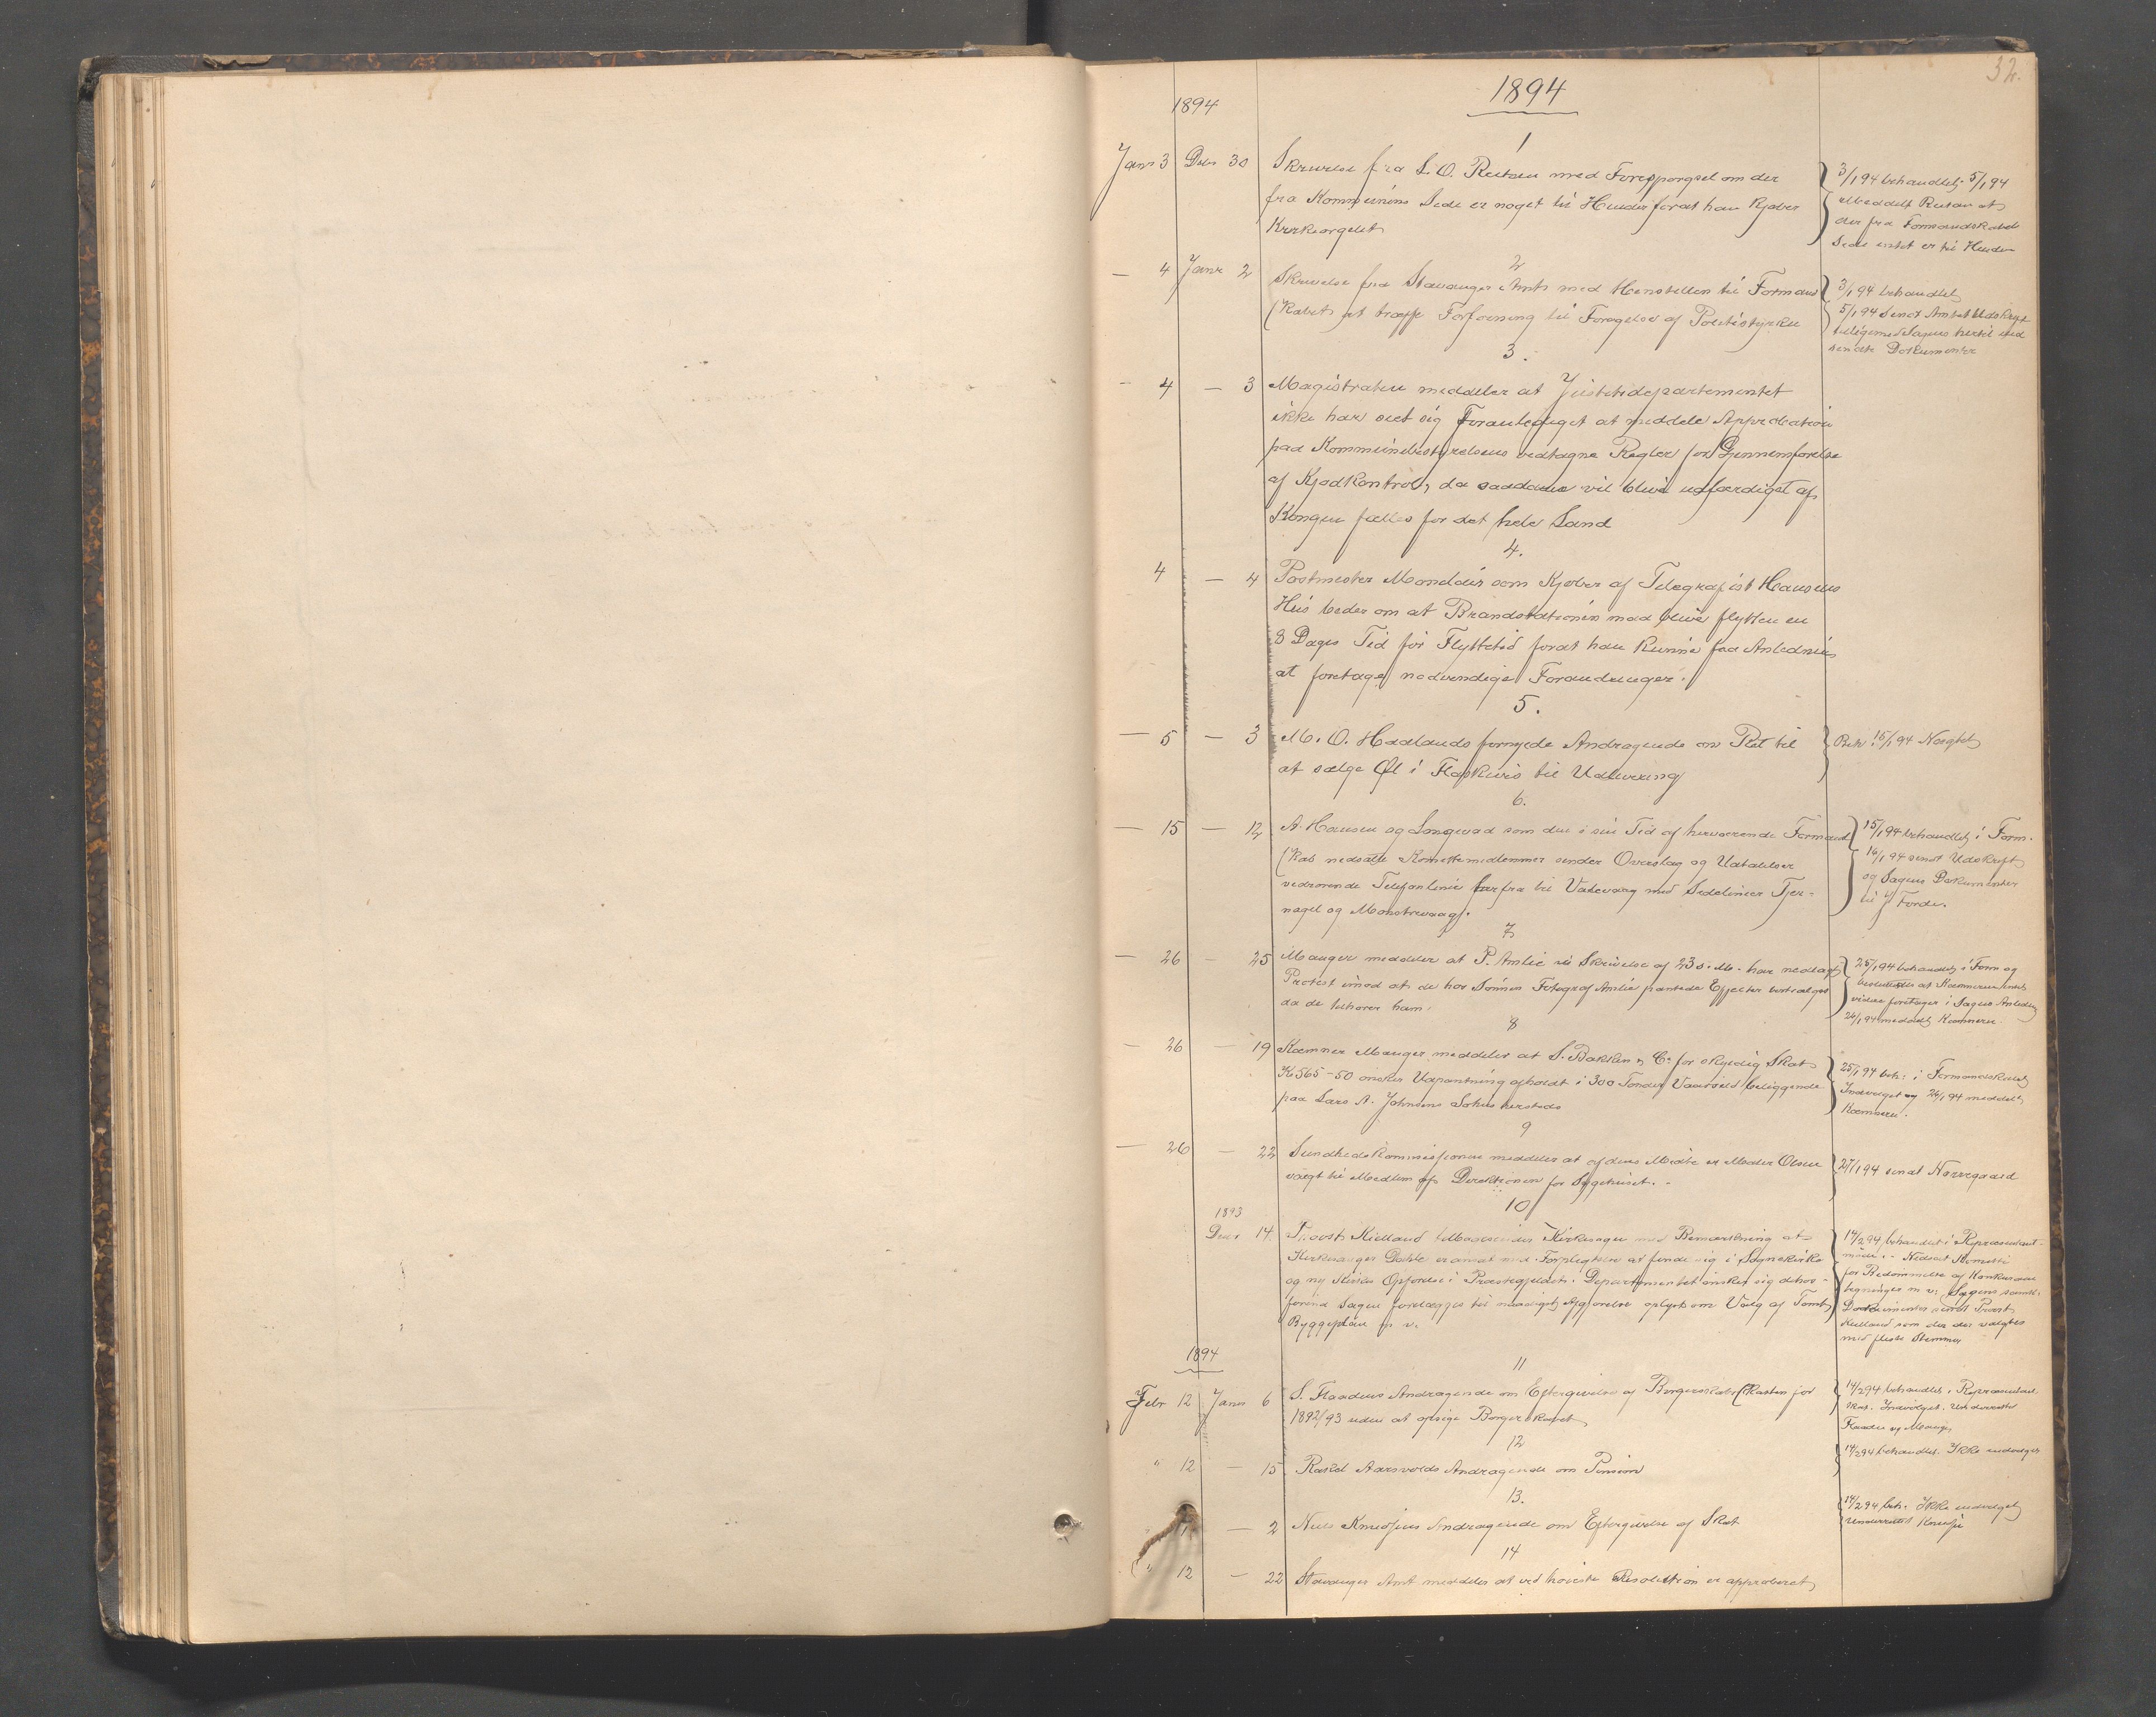 32.
1894
1894
1
Janr 3 Decbr 30 Skrivelse fra L. O. Reitan med Forespørgsel om der
fra Kommunens Side er noget til Hinder fordt han Kjøber
Kirkeorgelet
3/1 94 behandlet 5/1 94
Meddelt Reitan at
der fra Formandskabets
Side intet er til Hinder
2
— 4 Janr 2 Skrivelse fra Stavanger Amt med Henstillen til Formand
skabet at træffe Forføining til Forøgelse af Politistyrken
3/1 94 behandlet
5/1 94 Sendt Amtet Udskrift
tilligemed Sagens hertil ind
sendte Dokumenter
3.
— 4 — 3 Magistraten meddeler at Justitsdepartementet
ikke har seet sig Foranlediget at meddele Approbation
paa Kommunebestyrelsens vedtagne Regler for Gjennemførelse
af Kjødkontrol, da saadanne vil blive udfærdiget af
Kongen fælles for det hele Land
4.
4 — 4 Postmester som Kjøber af Telegrafist Hansens
Hus beder om at Brandstationen maa blive flyttet en
8 Dages Tid før Flyttetid fordt han Kunne faa Anledning
at foretage nødvendige Forandringer.
5.
— 5 — 3 M. O. Haalands fornyede Andragende om Ret til
at sælge Øl i Flaskevis til Udlevering
Beh: 15/1 94 Nægtet
6.
— 15 — 12 A. Hansen og Longvad som den i sin Tid af herværende Formand
skab nedsatte Komitemedlemmer sender Overslag og Udtalelser
vedrørende Telefonlinie herfra til Valevaag med Sidelinier Tjer-
nagel og Mosterevaag.
15/1 94 behandlet i Form.
16/1 94 sendt Udskrift
og Sagens Dokumenter
til J Førde.
7
— 26 — 25 Mauger meddeler at P. Amlie i Skrivelse af 23 d. M. har nedlagt
Protest imod at de hos Sønnen Fotograf Amlie pantede Effecter bortsælges
da de tilhører ham.
25/1 94 behandlet i Form og
besluttedes at Kæmneren intet
videre foretager i Sagens Anledn
26/1 94 meddelt Kæmneren.
8
— 26 — 19 Kæmner Mauger meddeler at S. Bakken & Co for skyldig Skat
Kr 565-50 ønsker Udpantning afholdt i 300 Tønder Vaarsild beliggende
paa Lars A. Johnsens
25/1 94 beh: i Formandskabet
Indvilget og 26/1 94 meddelt
Kæmneren.
9
— 26 — 22 Sundhedskommissionen meddeler at af dens Midte er Mæler Olsen
valgt til Medlem af Direktionen for Sygehuset. -
27/1 94 sendt Nørregaard
10
1893
Decr 14. Provst Kielland tilbagesender Kirkesagen med Bemærkning at
Kirkesanger er ansat med Forpligtelse at finde sig i Sognekirke
og ny Kirkes Opførelse i Præstegjeldet. Departementet ønsker sig
førend Sagen forelægges til naadigst Afgjørelse oplyst om Valg af Tomt,
Byggeplan m. v.
14/2 94 behandlet i Repræsentant-
møde. - Nedsat Komite
for Bedømmelse af Konkurrance
tegninger m v: Sagens samtl.
Dokumenter sendt Provst
Kielland som da den valgtes
med fleste Stemmer
1894
11
Febr 12 Janr 6 S. Flaadens Andragende om Eftergivelse af Borgerskabsskatten for
1892/93 uden at opsige Borgerskabet
14/2 94 behandlet i Repræsentant
skab. Indvilget. Underrettet
Flaaden og Mauger
12
" 12 — 15 Rasmus Aarsvolds Andragende om Pension
14/2 94 behandlet. Ikke indvilget
13.
— 2 Niels Andragende om Eftergivelse af Skat
14/2 94 beh. Ikke indvilget
Underrettet
14
" 12 — 22 Stavanger Amt meddeler at ved høieste Resolution er approberet